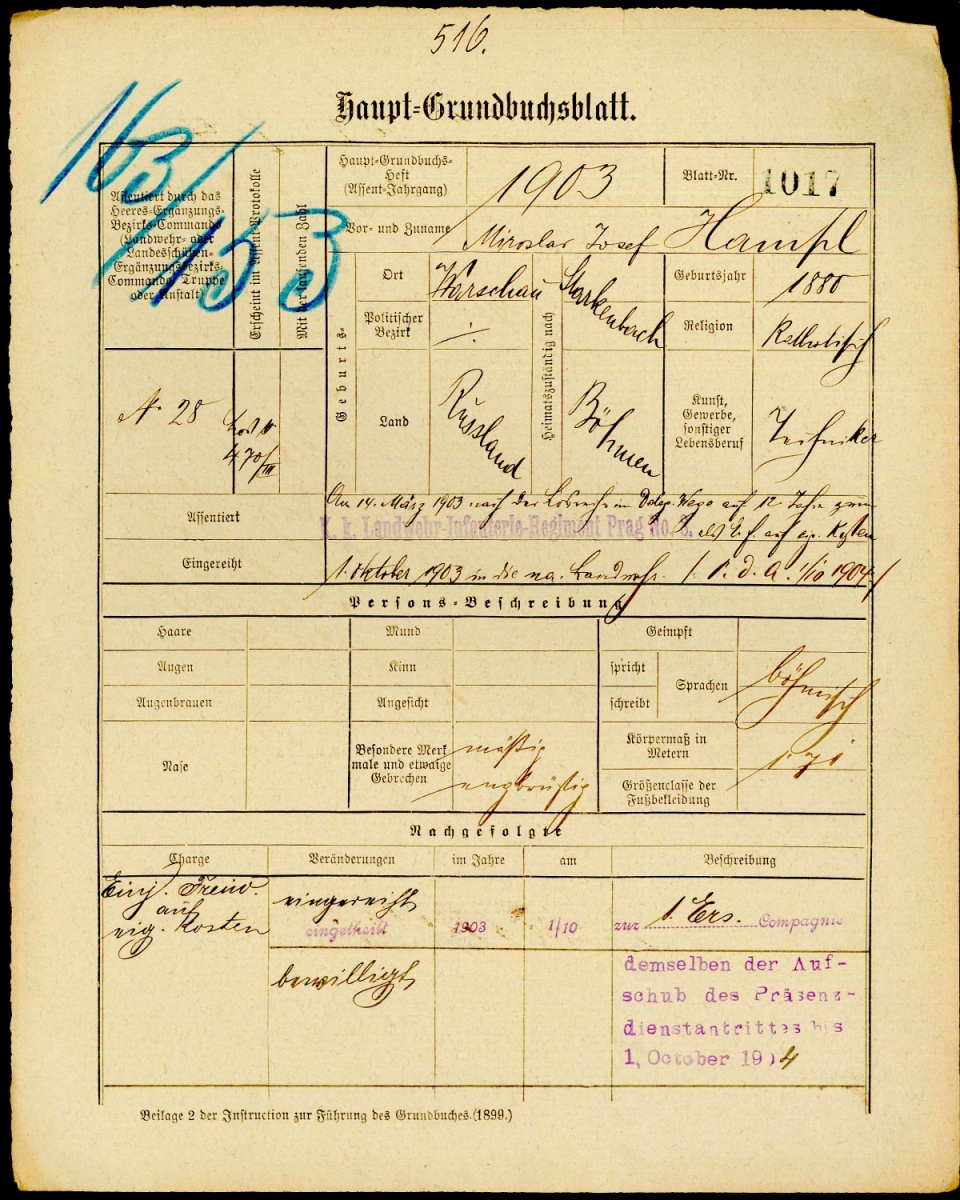 516.
Haupt-Grundbuchsblatt.
163/
153
Assentiert durch das
Heeres-Ergänzungs-
Bezirks-Commando
(Landwehr- oder
Landesschützen-
Ergänzungsbezirks-
Commando, Truppe
oder Anstalt)
Erscheint im Assent-Protokolle
Mit der laufenden Zahl
Haupt-Grundbuchs-
Heft
(Assent-Jahrgang)
1903
Blatt-Nr.
1017
Vor- und Zuname
Miroslav Josef Hampl
Geburts-
Ort
Warschau
Politischer
Bezirk
Land
Russland
Heimatszuständig nach
Starkenbach
Böhmen
Geburtsjahr
1880
Religion
Katholisch
Kunst,
Gewerbe,
sonstiger
Lebensberuf
Techniker
N. 28
470/III
Assentiert
Am 14. März 1903 nach der auf 12 Jahre zum
K. k. Landwehr-Infanterie-Regiment Prag No. 8. als E. f. auf eig. Kosten
Eingereiht
1. Oktober 1903 in die Landwehr. 1/10 1904
Persons-Beschreibung
Haare
Mund
Geimpft
Augen
Kinn
spricht
Sprachen
böhmisch
Augenbrauen
Angesicht
schreibt
Nase
Besondere Merk
male und etwaige
Gebrechen
mäßig
engbrüstig
Körpermaß in
Metern
Größenclasse der
Fußbekleidung
Nachgefolgte
Charge
Veränderungen
im Jahre
am
Beschreibung
Einj. Freiw.
auf
eig. Kosten
eingereiht
eingetheilt
1903
1/10
zur 1. Ers. Compagnie
bewilligt
demselben der Auf-
schub des Präsenz-
dienstantrittes bis
1, October 1904
Beilage 2 der Instruction zur Führung des Grundbuches (1899.)